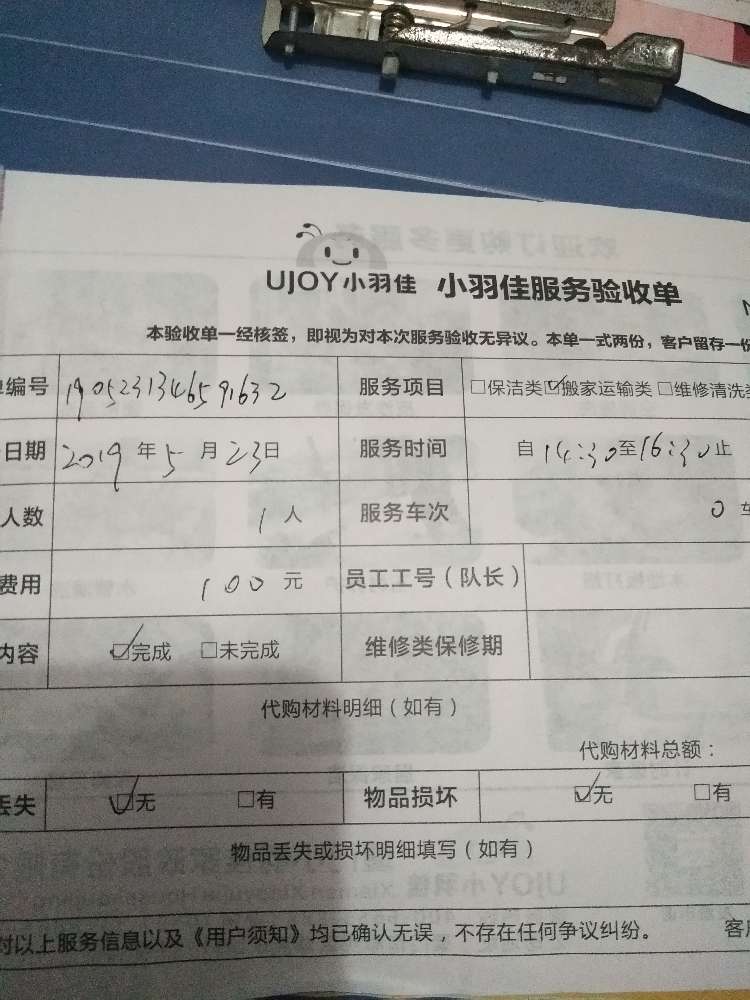 UJOY小羽佳 小羽佳服务验收单
本验收单一经核签，即视为对本次服务验收无异议。本单一式两份，客户留存一份
编号 1905231346591632 服务项目 □保洁类☑搬家运输类□维修清洗类
日期 2019年5月23日 服务时间 自14:30至16:30止
人数 1人 服务车次 0车
费用 100元 员工工号（队长）
内容 ☑完成 □未完成 维修类保修期
代购材料明细（如有）
代购材料总额：
丢失 ☑无 □有 物品损坏 ☑无 □有
物品丢失或损坏明细填写（如有）
对以上服务信息以及《用户须知》均已确认无误，不存在任何争议纠纷。 客户